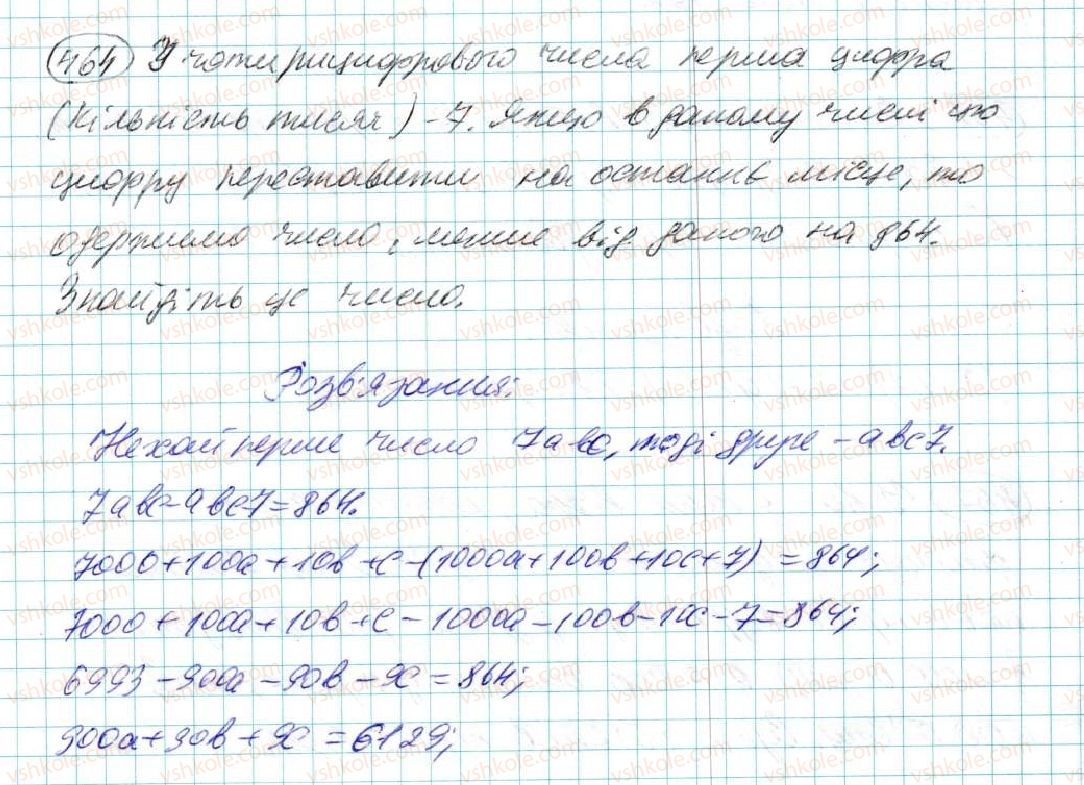 464 У чотирицифрового числа перша цифра
(кількість тисяч) - 7. Якщо в даному числі цю
цифру переставити на останнє місце, то
одержимо число, менше від даного на 864.
Знайдіть це число.
Розв'язання:
Нехай перше число 7авс, тоді друге - авс7.
7авс-авс7=864.
7000+100а+10в+с-(1000а+100в+10с+7)=864;
7000+100а+10в+с-1000а-100в-10с-7=864;
6993-900а-90в-9с=864;
900а+90в+9с=6129;